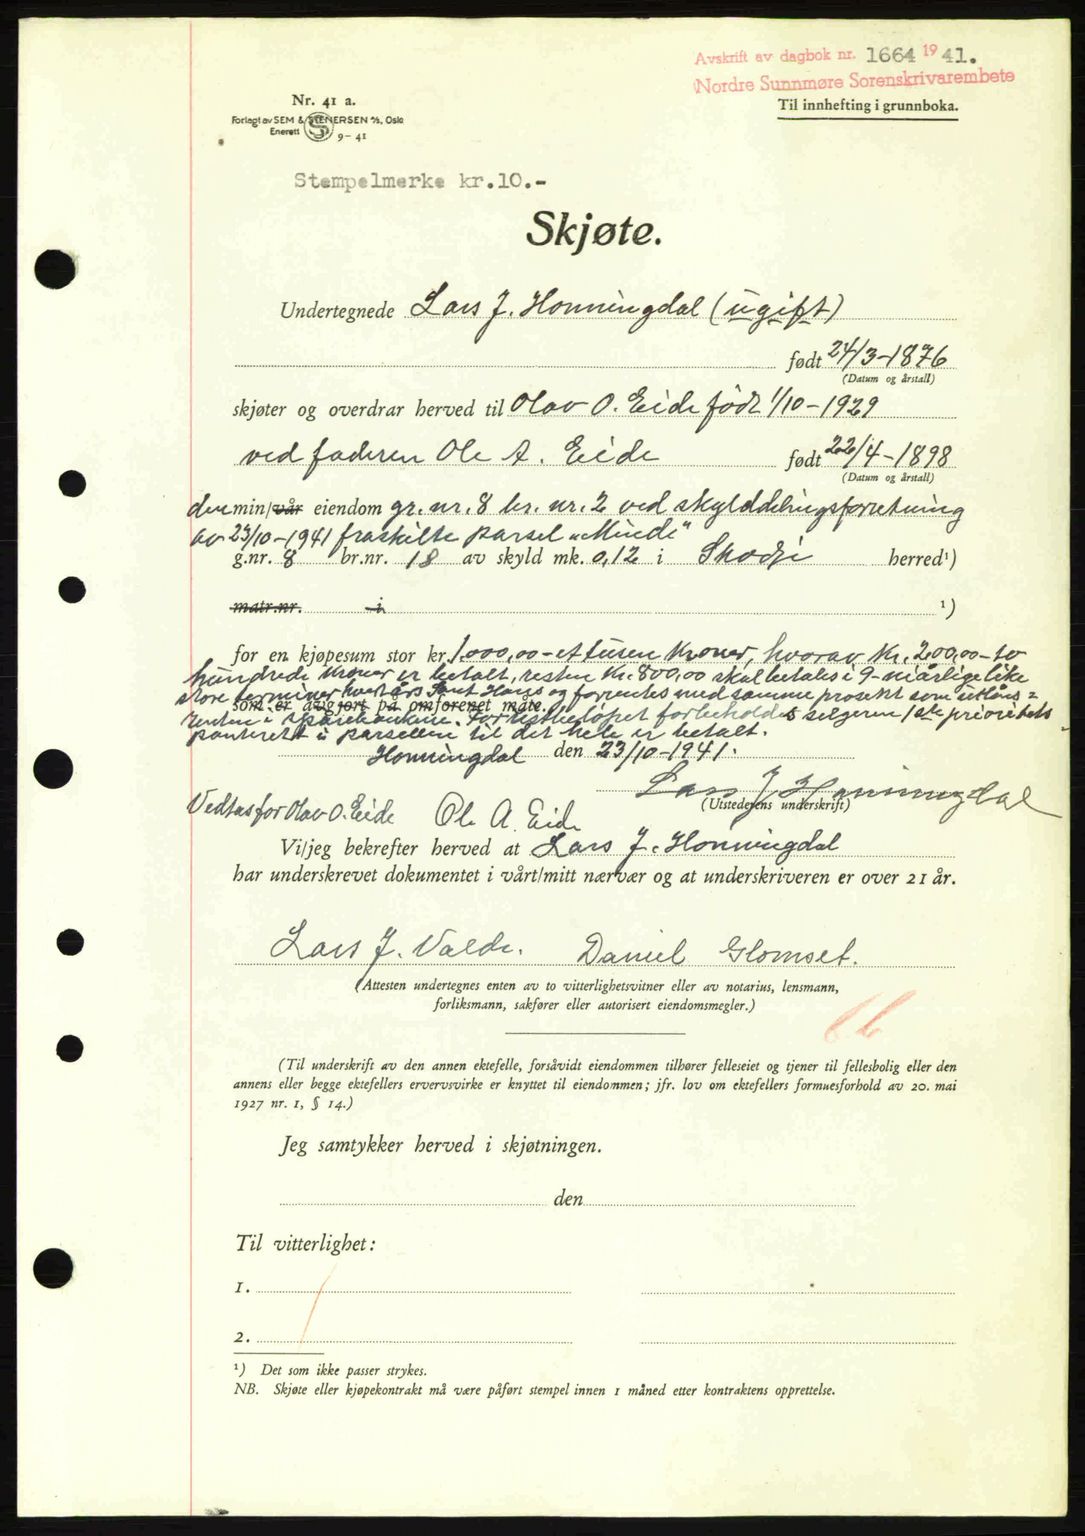 Avskrift av dagbok nr. 1664 1941.
Nordre Sunnmøre Sorenskrivarembete
Til innhefting i grunnboka.
Nr. 41 a.
Forlagt av SEM & STENERSEN A/S, Oslo
Enerett S 9-41
Stempelmerke kr.10.-
Skjøte.
Undertegnede Lars J. Honningdal (ugift)
født 24/3-1876
(Datum og årstall)
skjøter og overdrar herved til Olav O. Eide født 1/10-1929
ved faderen Ole A. Eide født 22/4-1898
(Datum og årstall)
den min/vår eiendom gr. nr. 8 br. nr. 2 ved skylddelingsforretning
av 23/10-1941 fraskilte parsel "Minde"
g.nr. 8 br.nr. 18 av skyld mk. 0,12 i Skodje herred¹)
matr.nr. i ¹)
for en kjøpesum stor kr. 1.000,00 - et tusen kroner, hvorav kr. 200,00 - to
hundrede kroner er betalt, resten kr. 800,00 skal betales i 9-ni årlige like
store terminer hvert års Sant Hans og forrentes med samme prosent som utlåns-
som er avgjort på omforenet måte.
renten i sparebankene. For restbeløpet forbeholdes selgeren 1ste prioritets
panterett i parsellen til det hele er betalt.
Honningdal den 23/10-1941.
Lars J Honningdal
(Utstederens underskrift)
Vedtas for Olav O. Eide Ole A. Eide
Vi/jeg bekrefter herved at Lars J. Honningdal
har underskrevet dokumentet i vårt/mitt nærvær og at underskriveren er over 21 år.
Lars J. Valde. Daniel Glomset.
(Attesten undertegnes enten av to vitterlighetsvitner eller av notarius, lensmann,
forliksmann, sakfører eller autorisert eiendomsmegler.)
(Til underskrift av den annen ektefelle, forsåvidt eiendommen tilhører felleseiet og tjener til fellesbolig eller den
annens eller begge ektefellers ervervsvirke er knyttet til eiendommen; jfr. lov om ektefellers formuesforhold av 20. mai
1927 nr. 1, § 14.)
Jeg samtykker herved i skjøtningen.
den
Til vitterlighet:
1.
2.
¹) Det som ikke passer strykes.
NB. Skjøte eller kjøpekontrakt må være påført stempel innen 1 måned etter kontraktens opprettelse.